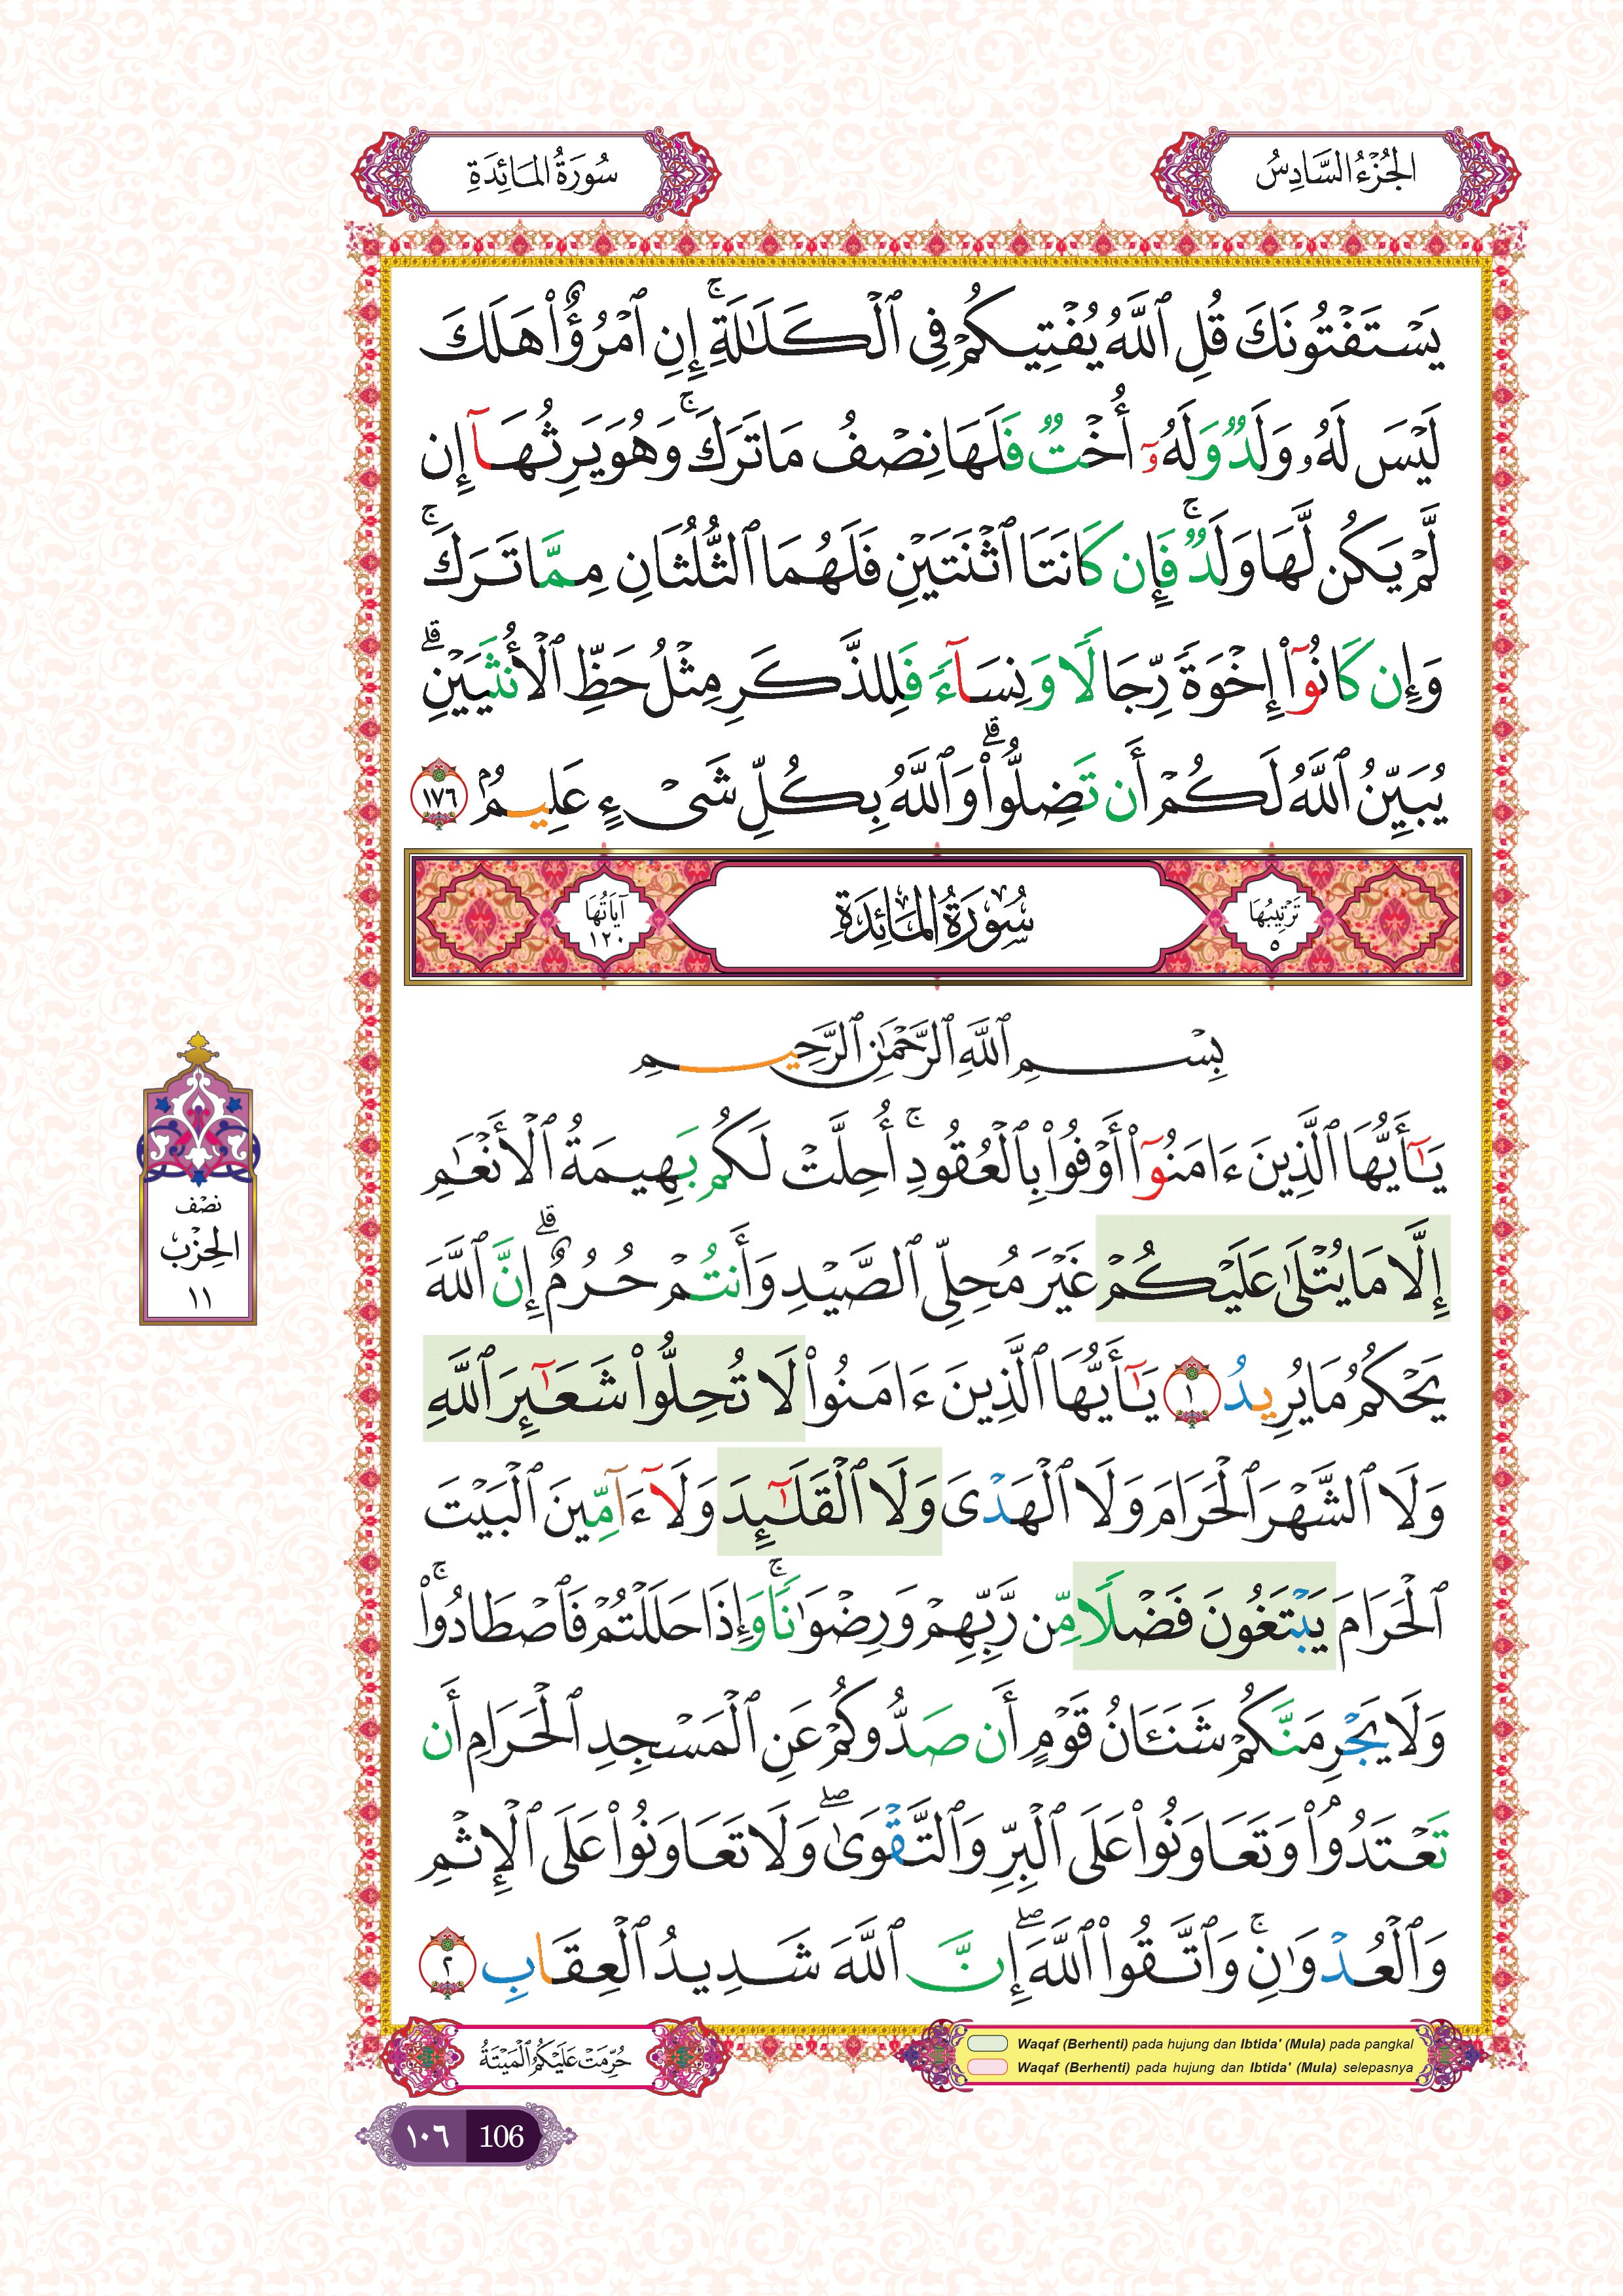 الجُزْءُ السَّادِسُ
سُورَةُ المَائِدَةِ
يَسْتَفْتُونَكَ قُلِ ٱللَّهُ يُفْتِيكُمْ فِى ٱلْكَلَٰلَةِ ۚ إِنِ ٱمْرُؤٌا۟ هَلَكَ
لَيْسَ لَهُۥ وَلَدٌ وَلَهُۥٓ أُخْتٌ فَلَهَا نِصْفُ مَا تَرَكَ ۚ وَهُوَ يَرِثُهَآ إِن
لَّمْ يَكُن لَّهَا وَلَدٌ ۚ فَإِن كَانَتَا ٱثْنَتَيْنِ فَلَهُمَا ٱلثُّلُثَانِ مِمَّا تَرَكَ ۚ
وَإِن كَانُوٓا۟ إِخْوَةً رِّجَالًا وَنِسَآءً فَلِلذَّكَرِ مِثْلُ حَظِّ ٱلْأُنثَيَيْنِ ۗ
يُبَيِّنُ ٱللَّهُ لَكُمْ أَن تَضِلُّوا۟ ۗ وَٱللَّهُ بِكُلِّ شَىْءٍ عَلِيمٌۢ ١٧٦
تَرْتِيبُهَا ٥ سُورَةُ المَائِدَةِ آيَاتُهَا ١٢٠
بِسْمِ ٱللَّهِ ٱلرَّحْمَٰنِ ٱلرَّحِيمِ
يَٰٓأَيُّهَا ٱلَّذِينَ ءَامَنُوٓا۟ أَوْفُوا۟ بِٱلْعُقُودِ ۚ أُحِلَّتْ لَكُم بَهِيمَةُ ٱلْأَنْعَٰمِ
إِلَّا مَا يُتْلَىٰ عَلَيْكُمْ غَيْرَ مُحِلِّى ٱلصَّيْدِ وَأَنتُمْ حُرُمٌ ۗ إِنَّ ٱللَّهَ
يَحْكُمُ مَا يُرِيدُ ١ يَٰٓأَيُّهَا ٱلَّذِينَ ءَامَنُوا۟ لَا تُحِلُّوا۟ شَعَٰٓئِرَ ٱللَّهِ
وَلَا ٱلشَّهْرَ ٱلْحَرَامَ وَلَا ٱلْهَدْىَ وَلَا ٱلْقَلَٰٓئِدَ وَلَآ ءَآمِّينَ ٱلْبَيْتَ
ٱلْحَرَامَ يَبْتَغُونَ فَضْلًا مِّن رَّبِّهِمْ وَرِضْوَٰنًا ۚ وَإِذَا حَلَلْتُمْ فَٱصْطَادُوا۟ ۚ
وَلَا يَجْرِمَنَّكُمْ شَنَـَٔانُ قَوْمٍ أَن صَدُّوكُمْ عَنِ ٱلْمَسْجِدِ ٱلْحَرَامِ أَن
تَعْتَدُوا۟ ۘ وَتَعَاوَنُوا۟ عَلَى ٱلْبِرِّ وَٱلتَّقْوَىٰ ۖ وَلَا تَعَاوَنُوا۟ عَلَى ٱلْإِثْمِ
وَٱلْعُدْوَٰنِ ۚ وَٱتَّقُوا۟ ٱللَّهَ ۖ إِنَّ ٱللَّهَ شَدِيدُ ٱلْعِقَابِ ٢
نصف
الحِزْب
١١
Waqaf (Berhenti) pada hujung dan Ibtida' (Mula) pada pangkal
Waqaf (Berhenti) pada hujung dan Ibtida' (Mula) selepasnya
حُرِّمَتْ عَلَيْكُمُ ٱلْمَيْتَةُ
١٠٦ 106